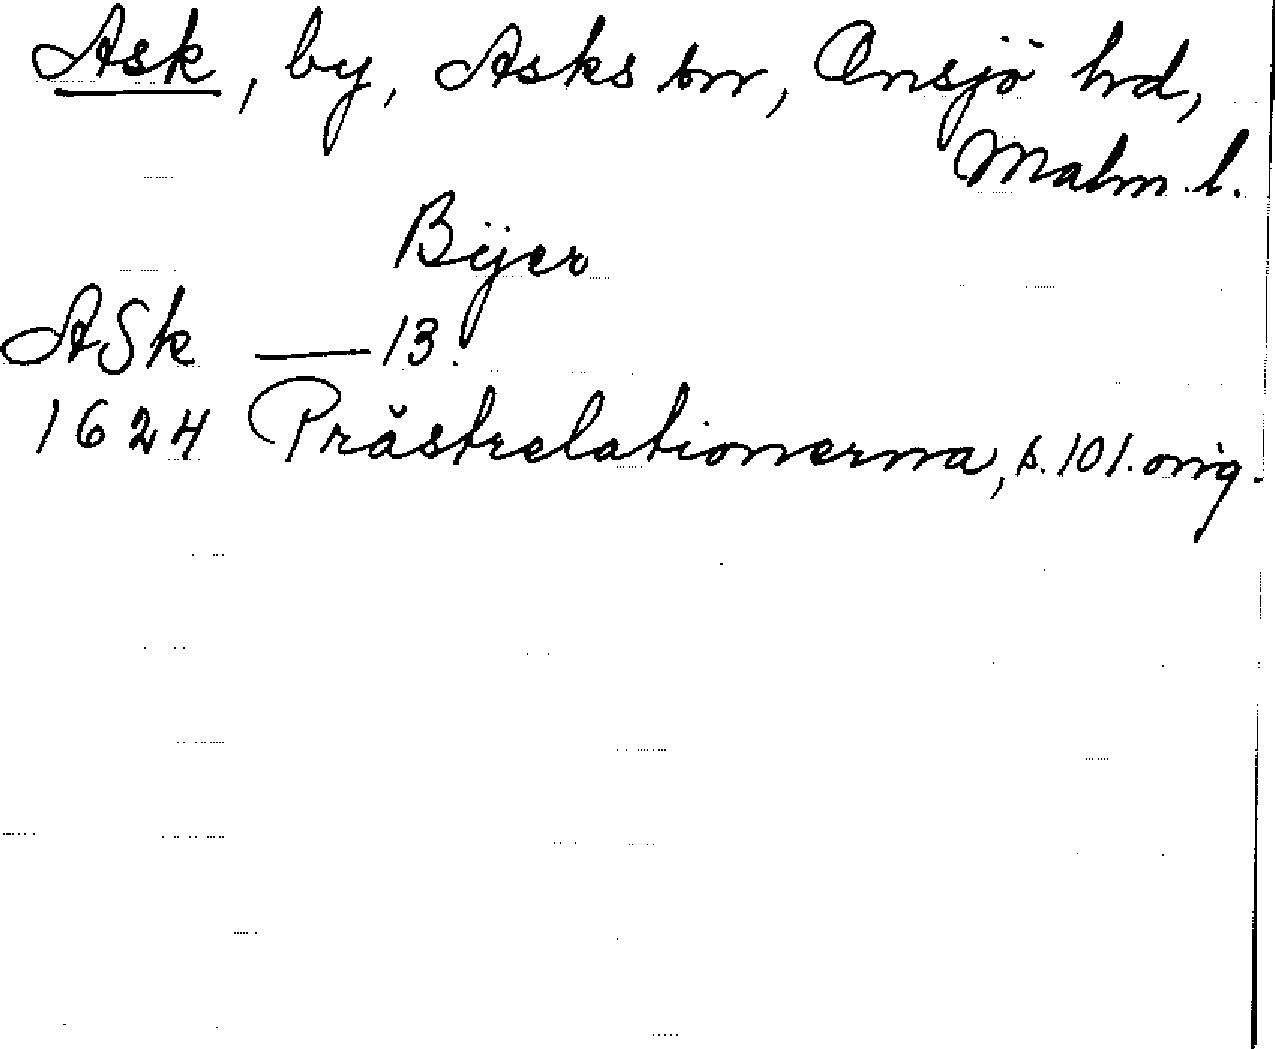 Ask, by, Asks sn, Onsjö hd,
Malm. l.
Bÿer
ASk — 13.
1624 Prästrelationerna, s. 101. orig.